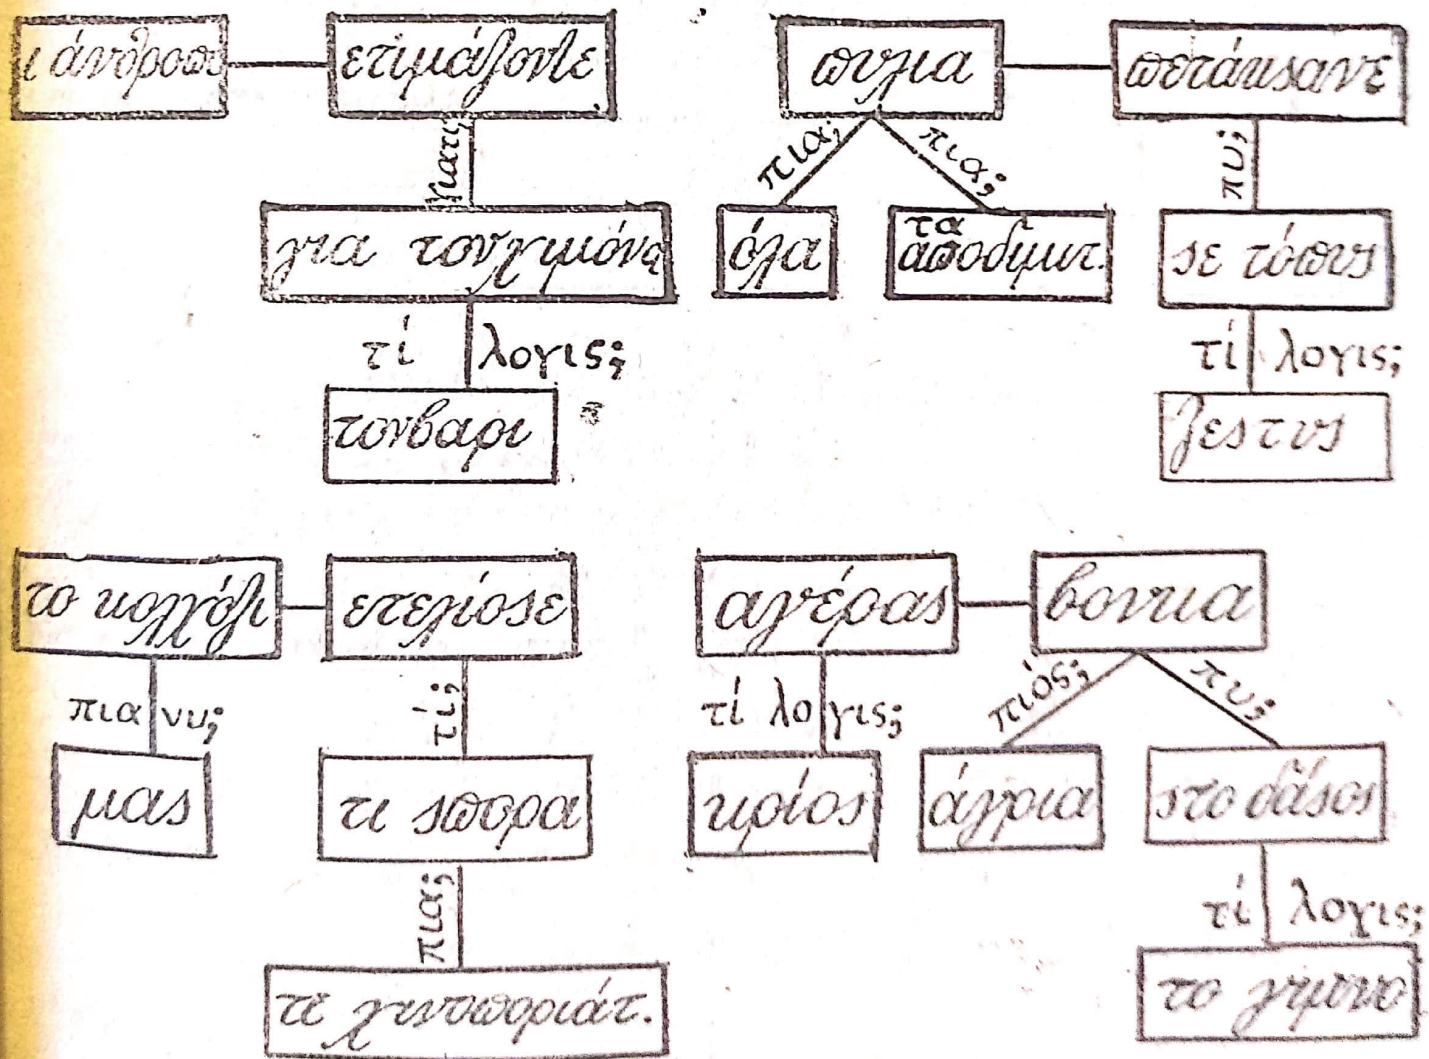 ι άνθροπι
ετιμάζοντε
γιατί;
για τονχιμόνα
τί λογις;
τονβαρι
πυλια
πετάκσανε
πια;
πια;
πυ;
όλα
τα
αποδιμιτ.
σε τόπυς
τί λογις;
ζεστυς
το κολχόζι
ετελίοσε
πια νυ;
τί;
μας
τι σπορα
πια;
τι χινοποριάτ.
αγέρας
βονκια
τί λογις;
πιός;
πυ;
κρίος
άγρια
στο δάσος
τί λογις;
το γιμνο